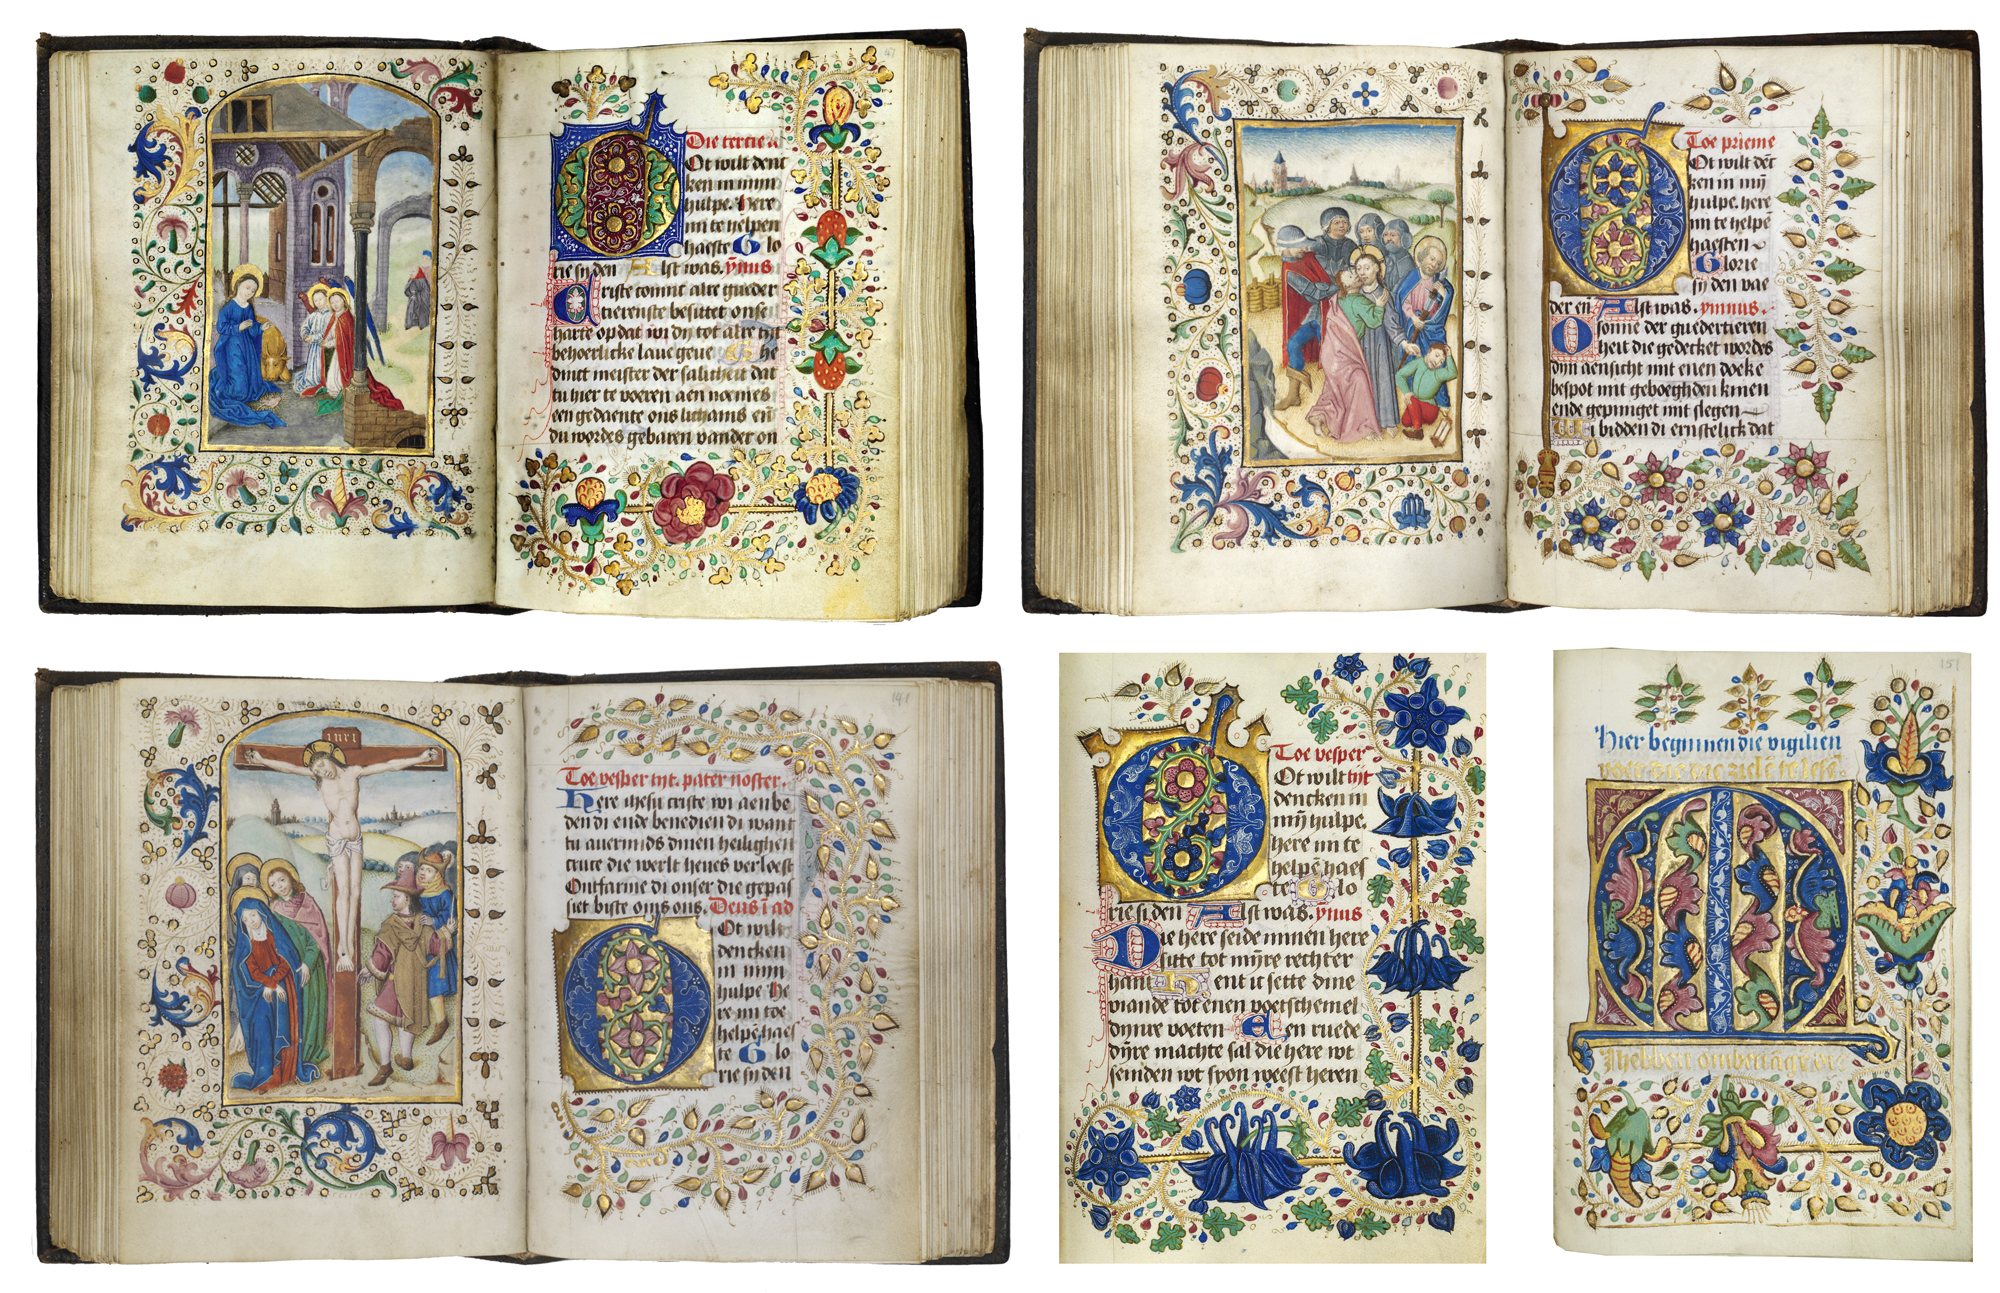 Die tercie
Ot wilt dent
ken in mijn
hulpe. Here
im te helpen
haeste Glo
rie sy den Alst was. ymus
Criste comnt alre gueder
tierenste besittet onse
harte opdat wi dy tot alre tijt
behoerlicke laue geue Ghe
dinct meister der salicheit dat
tu hier te voeren aen neemes
een gedaente ons lichams en
du wordes gebaren vander on
Toe prieme
Ot wilt det
ken in my
hulpe. here
im te helpe
haesten
Glorie
sy den vae
der en Alst was. ymnus.
O sonne der guedertieren
heit die gedecket wordes
dijn aensicht mit enen doeke
bespot mit geboeghden knien
ende gepiniget mit slegen
Wi bidden di ernstelick dat
INRI
141
Toe vesper tijt. pater noster.
Here ihesu criste wi aenbe
den di ende benedien di want
tu auermids dinen heilighen
cruce die werlt heues verloest
Ontfarme di onser die gepas
siet biste om ons. Deus i ad
Ot wilt
dencken
in mijn
hulpe He
re im toe
helpe haes
te Glo
rie sy den
Toe vesper
Ot wilt tijt
dencken in
my hulpe.
here im te
helpe haes
te Glo
rie si den Alst was. ymus
Die here seide minen here
sitte tot mijre rechter
hant Bent ic sette dine
viande tot enen voetschemel
dijnre voeten Een ruede
dijre machte sal die here wt
seinden wt syon weest heren
151
Hier beginnen die vigilien
voer die zielē te lesē